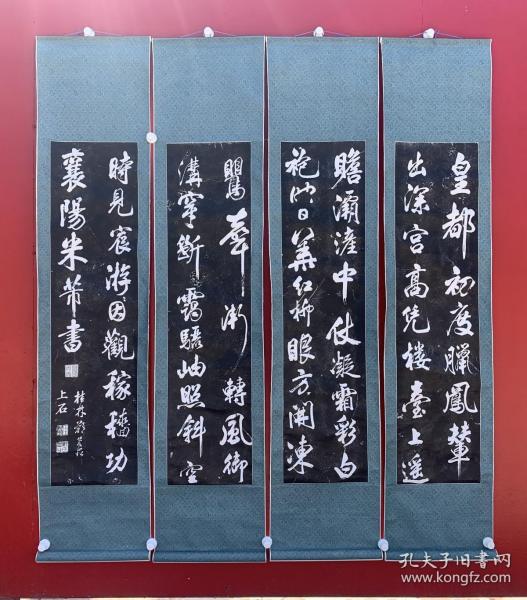 皇都初度臘鳳輦
出深宫高凭楼臺上遥
瞻灞滻中仗凝霜彩白
袍映日華红柳眼方開凍
鶯聲漸轉風御
溝穿斷靄驪岫照斜空
時見宸游因觀稼穡功
襄陽米芾書
桂林
上石
孔夫子旧书网
www.kongfz.com